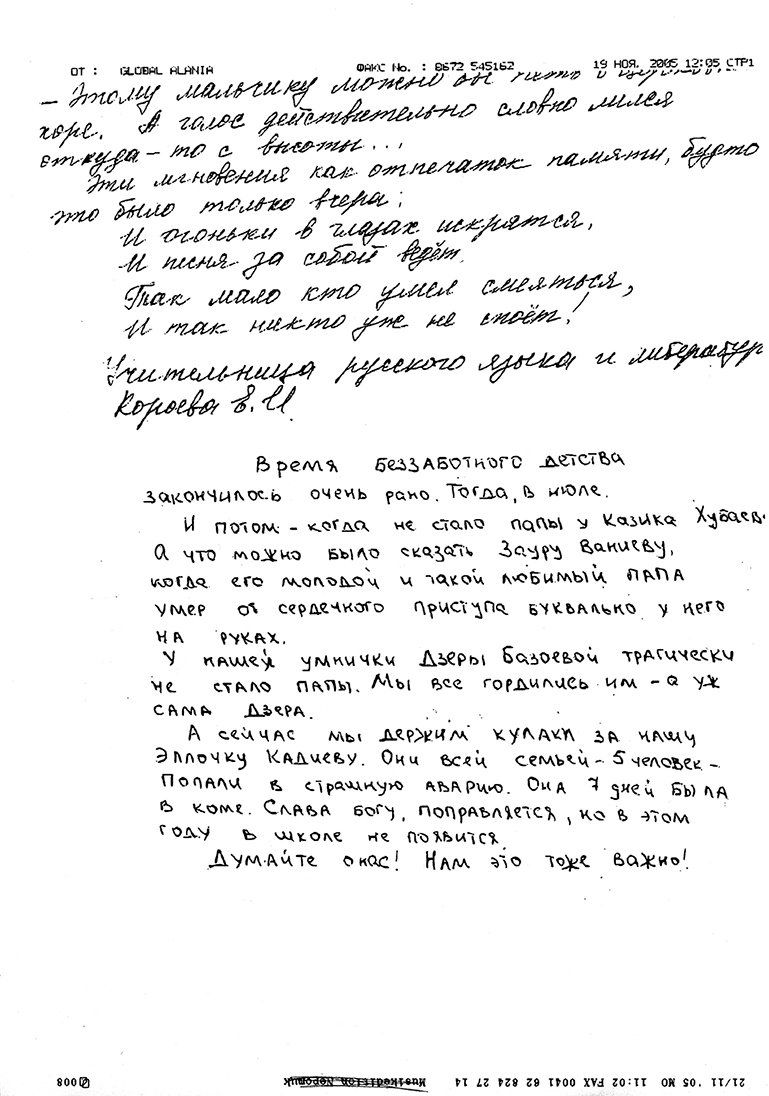 ОТ : GLOBAL ALANIA ФАКС No. : 8672 545162 19 НОЯ. 2005 12:05 СТР1
— Этому мальчику можно бы
хоре. А голос действительно словно лился
откуда-то с высоты...
Эти мгновения как отпечаток памяти, будто
это было только вчера:
И огоньки в глазах искрятся,
И песня за собой ведёт.
Так мало кто умел смеяться,
И так никто уже не споёт!
Учительница русского языка и литератур
Короева Е.И.
Время беззаботного детства
закончилось очень рано. Тогда, в июле.
И потом – когда не стало папы у Казика Хубаев.
А что можно было сказать Зауру Ваниеву,
когда его молодой и такой любимый папа
умер от сердечного приступа буквально у него
на руках.
У нашей умнички Дзеры Базоевой трагически
не стало папы. Мы все гордились им – а уж
сама Дзера.
А сейчас мы держим кулаки за нашу
Эллочку Кадиеву. Они всей семьей – 5 человек –
попали в страшную аварию. Она 7 дней была
в коме. Слава Богу, поправляется, но в этом
году в школе не появится.
Думайте о нас! Нам это тоже важно!
21/11 '05 MO 11:02 FAX 0041 62 824 27 14 Musikedition Nepomuk 008